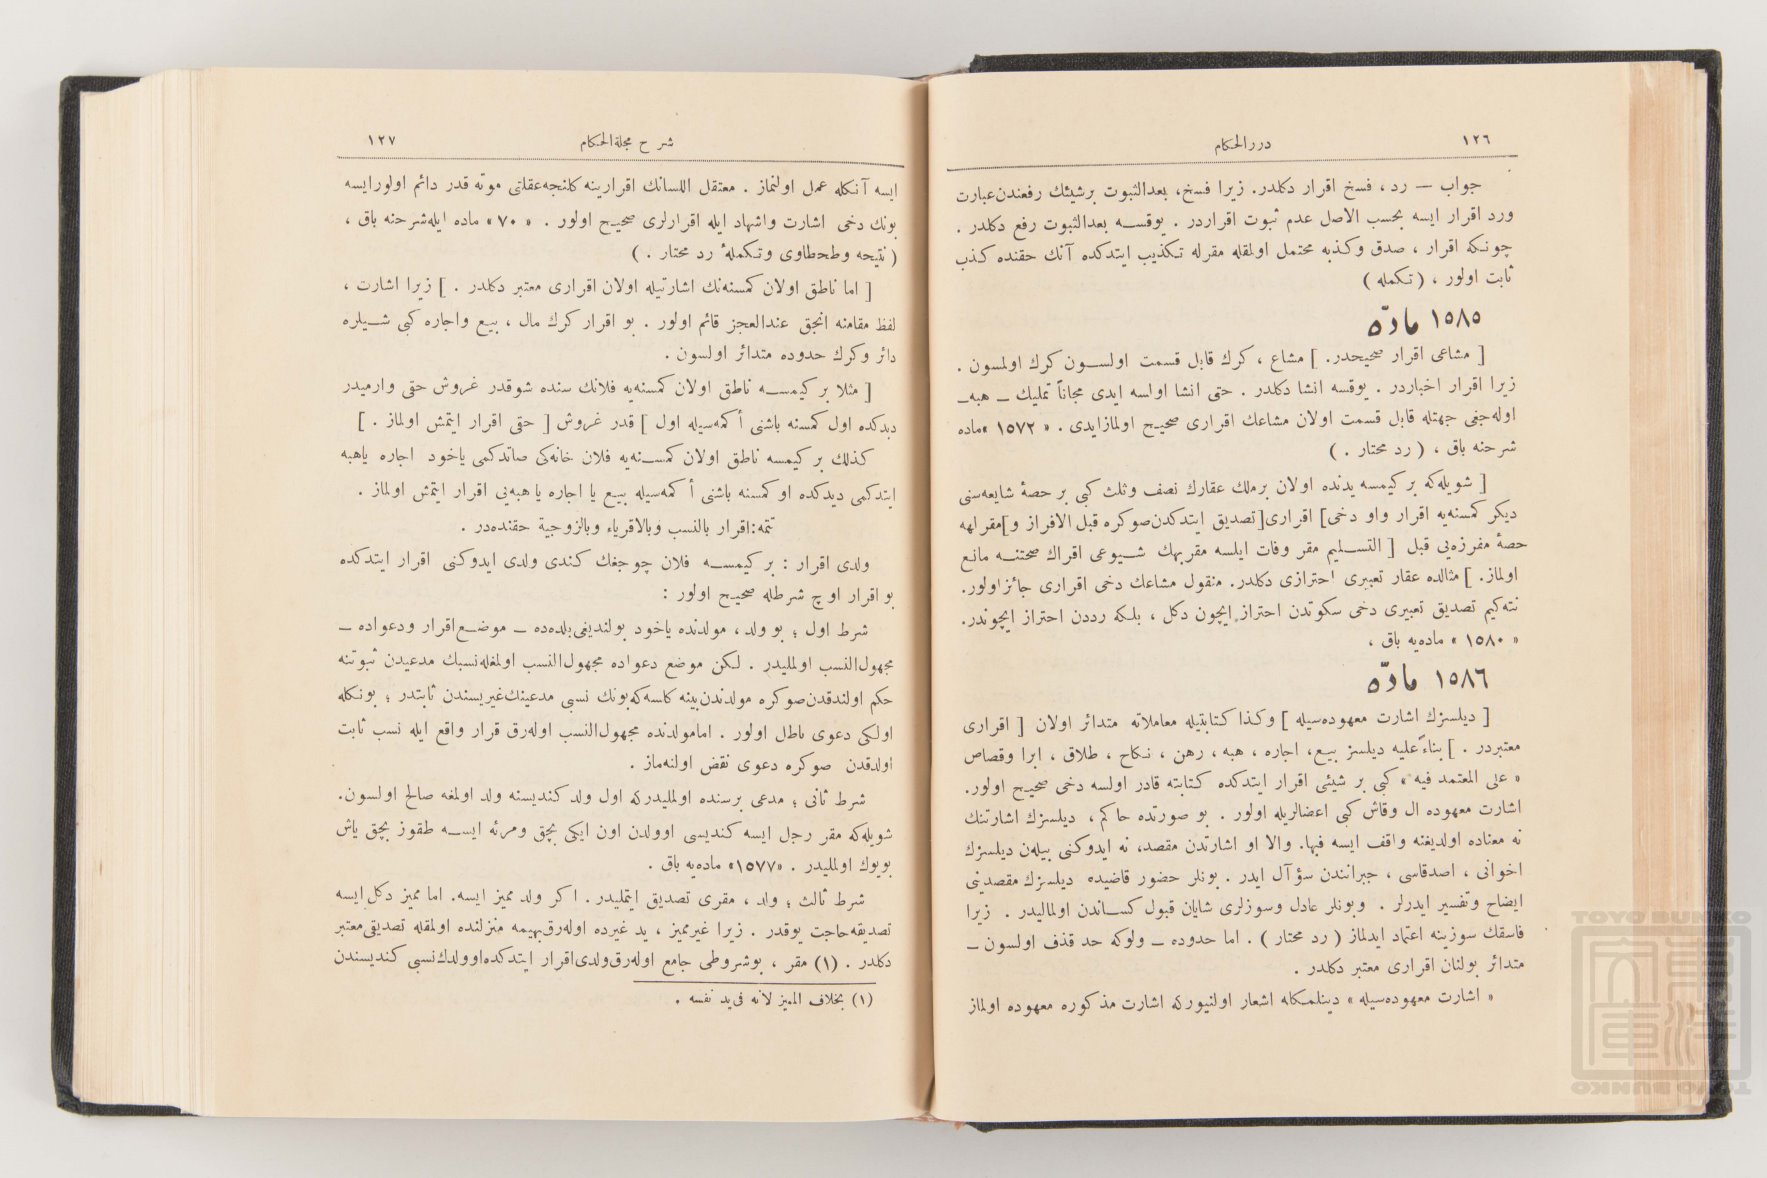 ١٢٦
دررالحكام
جواب — رد ، فسخ اقرار دكلدر. زيرا فسخ، بعدالثبوت برشيئك رفعندن عبارت
ورد اقرار ايسه بحسب الاصل عدم ثبوت اقراردر . يوقسه بعدالثبوت رفع دكلدر .
چونكه اقرار ، صدق وكذبه محتمل اولمقله مقرله تكذيب ايتدكده آنك حقنده كذب
ثابت اولور ، ( تكمله )
١٥٨٥ مادّه
[ مشاعى اقرار صحيحدر. ] مشاع ، كرك قابل قسمت اولسون كرك اولمسون .
زيرا اقرار اخباردر . يوقسه انشا دكلدر . حتى انشا اولسه ايدى مجاناً تمليك ــ هبه ــ
اوله جغى جهتله قابل قسمت اولان مشاعك اقرارى صحيح اولمازايدى . « ١٥٧٢ » ماده
شرحنه باق ، ( رد محتار . )
[ شويله كه بر كيمسه يدنده اولان برملك عقارك نصف وثلث كبى بر حصهٔ شايعه سنى
ديكر كمسنه يه اقرار واو دخى] اقرارى[تصديق ايتدكدن صوكره قبل الافراز و]مقرلهه
حصهٔ مفرزه يى قبل [ التسليم مقر وفات ايلسه مقربهك شيوعى اقراك صحتنه مانع
اولماز. ] مثالده عقار تعبيرى احترازى دكلدر. منقول مشاعك دخى اقرارى جائزاولور.
نته كيم تصديق تعبيرى دخى سكوتدن احتراز ايچون دكل ، بلكه رددن احتراز ايچوندر.
« ١٥٨٠ » ماده يه باق ،
١٥٨٦ مادّه
[ ديلسزك اشارت معهوده سيله ] وكذا كتابتيله معاملاته متدائر اولان [ اقرارى
معتبردر . ] بناءً عليه ديلسز بيع، اجاره ، هبه ، رهن ، نكاح ، طلاق ، ابرا وقصاص
« على المعتمد فيه » كبى بر شيئى اقرار ايتدكده كتابته قادر اولسه دخى صحيح اولور.
اشارت معهوده ال وقاش كبى اعضالريله اولور . بو صورتده حاكم ، ديلسزك اشارتنك
نه معناده اولديغنه واقف ايسه فبها. والا او اشارتدن مقصد، نه ايدوكنى بيلەن ديلسزك
اخوانى ، اصدقاسى ، جيرانندن سؤال ايدر . بونلر حضور قاضيده ديلسزك مقصدينى
ايضاح وتفسير ايدرلر . وبونلر عادل وسوزلرى شايان قبول كساندن اولماليدر . زيرا
فاسقك سوزينه اعتماد ايدلماز ( رد محتار ) . اما حدوده ــ ولوكه حد قذف اولسون ــ
متدائر بولنان اقرارى معتبر دكلدر .
« اشارت معهوده سيله » دينلمكله اشعار اولنيوركه اشارت مذكوره معهوده اولماز
شرح مجلةالحكام
١٢٧
ايسه آنكله عمل اولنماز . معتقل اللسانك اقرارينه كلنجه عقلتى موته قدر دائم اولورايسه
بونك دخى اشارت واشهاد ايله اقرارلرى صحيح اولور . « ٧٠ » ماده ايله شرحنه باق ،
( نتيجه وطحطاوى وتكملهٔ رد محتار . )
[ اما ناطق اولان كمسنه نك اشارتيله اولان اقرارى معتبر دكلدر . ] زيرا اشارت ،
لفظ مقامنه انجق عندالعجز قائم اولور . بو اقرار كرك مال ، بيع واجاره كبى شيلره
دائر وكرك حدوده متدائر اولسون .
[ مثلا بر كيمسه ناطق اولان كمسنه يه فلانك سنده شوقدر غروش حتى وارميدر
ديدكده اول كمسنه باشنى أكمه سيله اول ] قدر غروش [ حتى اقرار ايتمش اولماز . ]
كذلك بر كيمسه ناطق اولان كمسنه يه فلان خانه كى صاتدكمى ياخود اجاره ياهبه
ايتدكمى ديدكده او كمسنه باشنى أكمه سيله بيع يا اجاره يا هبه يى اقرار ايتمش اولماز .
تتمه:اقرار بالنسب وبالاقرباء وبالزوجية حقنده در .
ولدى اقرار : بر كيمسه فلان چوجغك كندى ولدى ايدوكنى اقرار ايتدكده
بو اقرار اوچ شرطله صحيح اولور :
شرط اول ؛ بو ولد ، مولدنده ياخود بولنديغى بلده ده ــ موضع اقرار ودعواده ــ
مجهول النسب اولمليدر . لكن موضع دعواده مجهول النسب اولمغله نسبك مدعيدن ثبوتنه
حكم اولندقدن صوكره مولدندن بينه كلسه كه بونك نسبى مدعينك غيريسندن ثابتدر ؛ بونكله
اولكى دعوى باطل اولور . امامولدنده مجهول النسب اوله رق قرار واقع ايله نسب ثابت
اولدقدن صوكره دعوى نقض اولنه ماز .
شرط ثانى ؛ مدعى برسنده اولمليدركه اول ولد كنديسنه ولد اولمغه صالح اولسون.
شويله كه مقر رجل ايسه كنديسى اوولدن اون ايكى بچق ومرئه ايسه طقوز بچق ياش
بويوك اولمليدر . «١٥٧٧» ماده يه باق .
شرط ثالث ؛ ولد ، مقرى تصديق ايتمليدر . اكر ولد مميز ايسه. اما مميز دكل ايسه
تصديقه حاجت يوقدر . زيرا غيرمميز ، يد غيرده اوله رق بهيمه منزلنده اولمقله تصديقى معتبر
دكلدر . (١) مقر ، بوشروطى جامع اوله رق ولدى اقرار ايتدكده اوولدك نسبى كنديسندن
(١) بخلاف المميز لانه فى يد نفسه .
TOYO BUNKO